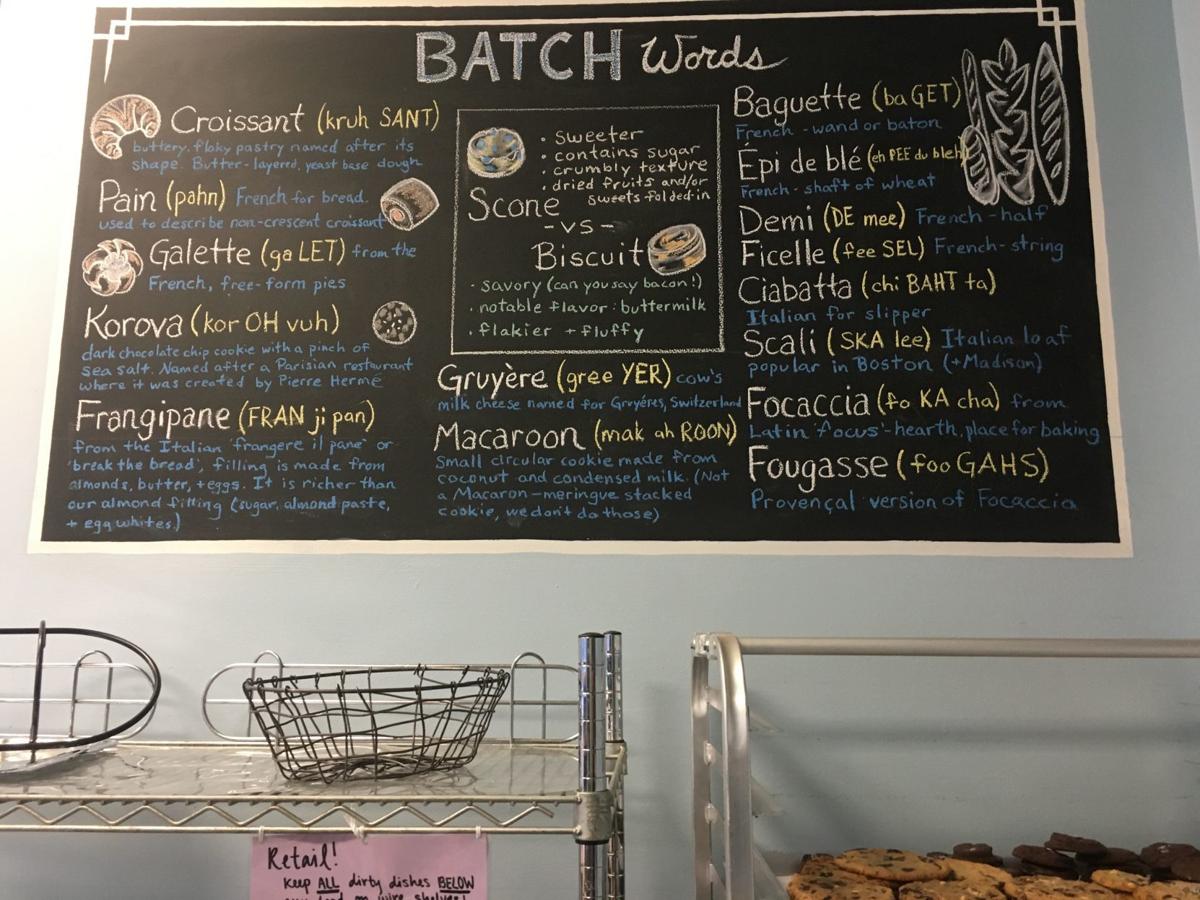 BATCH Words
Croissant (kruh SANT)
buttery, flaky pastry named after its
shape. Butter-layered, yeast base dough
Pain (pahn) French for bread.
used to describe non-crescent croissant
Galette (ga LET) from the
French, free-form pies
Korova (kor OH vuh)
dark chocolate chip cookie with a pinch of
sea salt. Named after a Parisian restaurant
where it was created by Pierre Hermé
Frangipane (FRAN ji pan)
from the Italian 'frangere il pane' or
'break the bread', filling is made from
almonds, butter, + eggs. It is richer than
our almond filling (sugar, almond paste,
+ egg whites)
• sweeter
• contains sugar
• crumbly texture
• dried fruits and/or
sweets folded-in
Scone
- VS -
Biscuit
• savory (can you say bacon!)
• notable flavor: buttermilk
• flakier + fluffy
Gruyère (gree YER) cow's
milk cheese named for Gruyéres, Switzerland
Macaroon (mak ah ROON)
Small circular cookie made from
coconut and condensed milk. (Not
a Macaron - meringue stacked
cookie, we don't do those)
Baguette (ba GET)
French - wand or baton
Épi de blé (eh PEE du bleh)
French - shaft of wheat
Demi (DE mee) French - half
Ficelle (fee SEL) French - string
Ciabatta (chi BAHT ta)
Italian for slipper
Scali (SKA lee) Italian loaf
popular in Boston (+ Madison)
Focaccia (fo KA cha) from
Latin 'focus' - hearth, place for baking
Fougasse (foo GAHS)
Provençal version of Focaccia
Retail!
Keep ALL dirty dishes BELOW